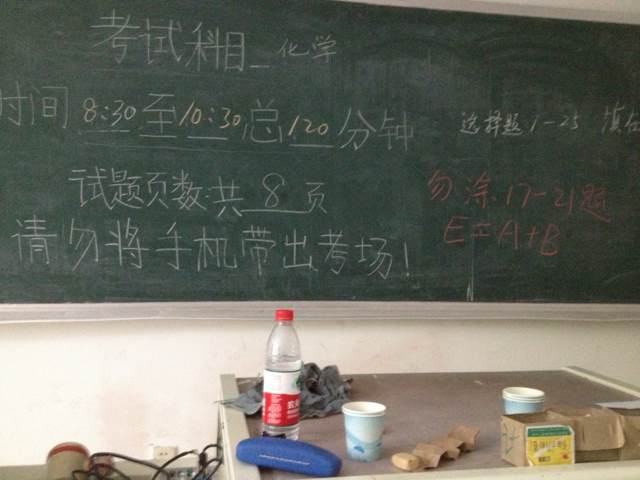 考试科目 化学
时间 8:30 至 10:30 总 120 分钟
选择题 1-25
试题页数:共 8 页
勿涂 17-21题
E=A+B
请勿将手机带出考场!